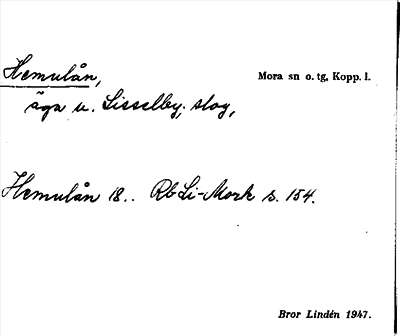 Hemulån, Mora sn o. tg, Kopp. l.
äga u. Lisselby, slog,
Hemulån 18.. Rb Li-Mork s. 154.
Bror Lindén 1947.